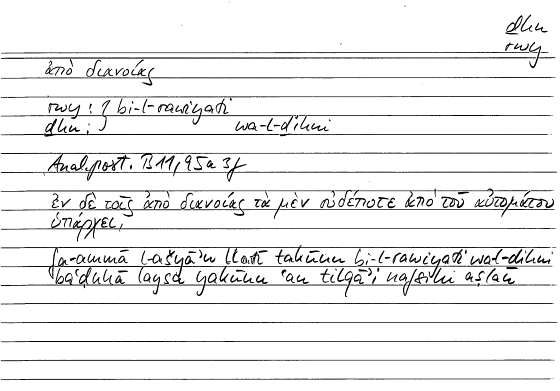 ḏhn
rwy
ἀπὸ διανοίας
rwy : } bi-l-rawiyati
ḏhn : } wa-l-ḏihni
Anal. post. B 11, 95a 3f
ἐν δὲ τοῖς ἀπὸ διανοίας τὰ μὲν οὐδέποτε ἀπὸ τοῦ αὐτομάτου
ὑπάρχει,
fa-ammā l-ašyāʾu llatī takūnu bi-l-rawiyati wa-l-ḏihni
baʿḍuhā laysa yakūnu ʿan tilqāʾi nafsihi aṣlan